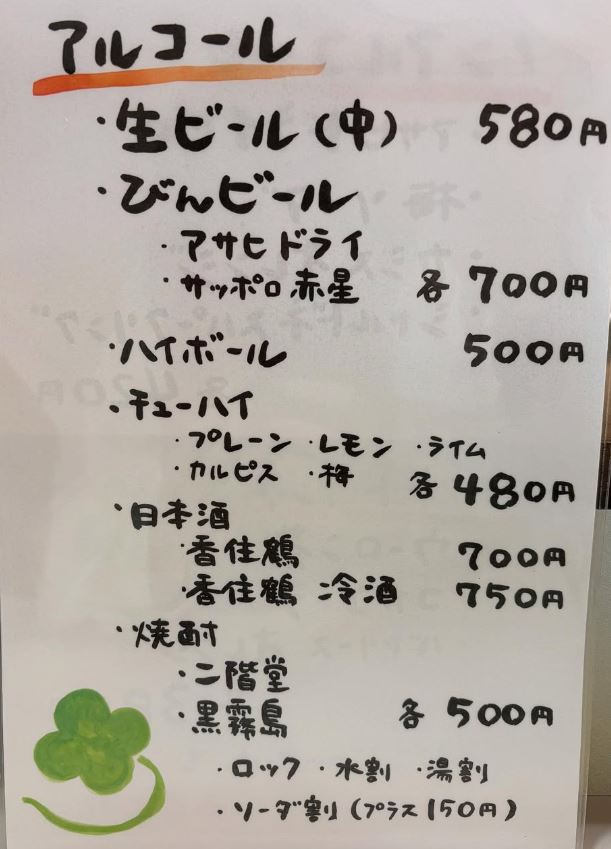 アルコール
・生ビール(中) 580円
・びんビール
・アサヒドライ
・サッポロ赤星 各700円
・ハイボール 500円
・チューハイ
・プレーン ・レモン ・ライム
・カルピス ・梅 各480円
・日本酒
・香住鶴 700円
・香住鶴 冷酒 750円
・焼酎
・二階堂
・黒霧島 各500円
・ロック ・水割 ・湯割
・ソーダ割(プラス150円)